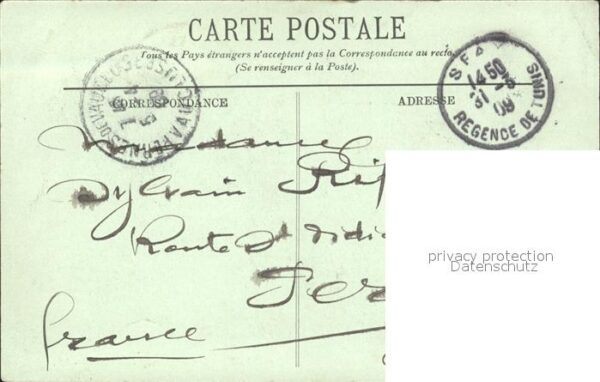 CARTE POSTALE
Tous les Pays étrangers n'acceptent pas la Correspondance au recto.
(Se renseigner à la Poste).
CORRESPONDANCE
ADRESSE
SFA
14 50
31 -5
09
REGENCE DE TUNIS
VAUCLUSE
Madame
Sylvain Rip
Route St Didi
Per
France
privacy protection
Datenschutz